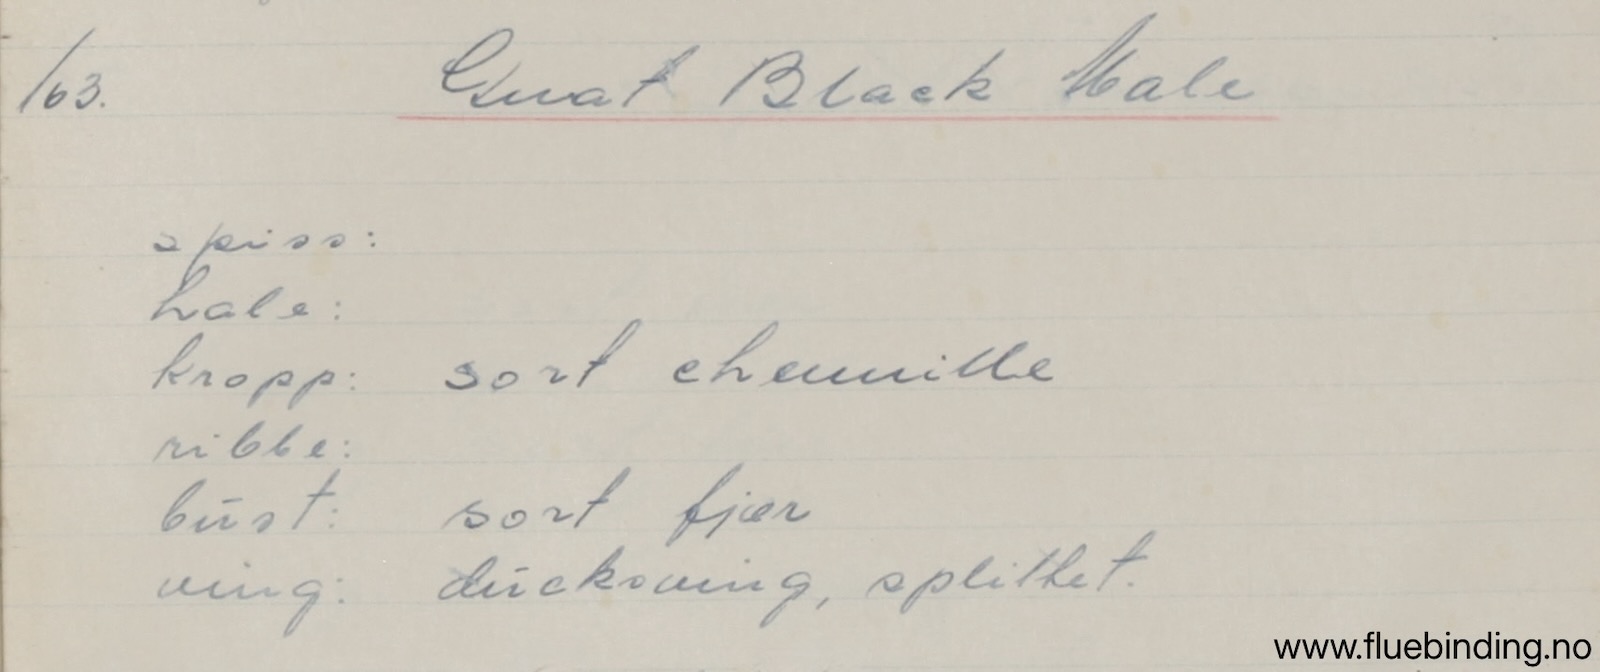 163. Gnat Black Male
spiss:
hale:
kropp: sort chennille
ribbe:
būst: sort fjær
ving: dūcksving, splittet.
www.fluebinding.no